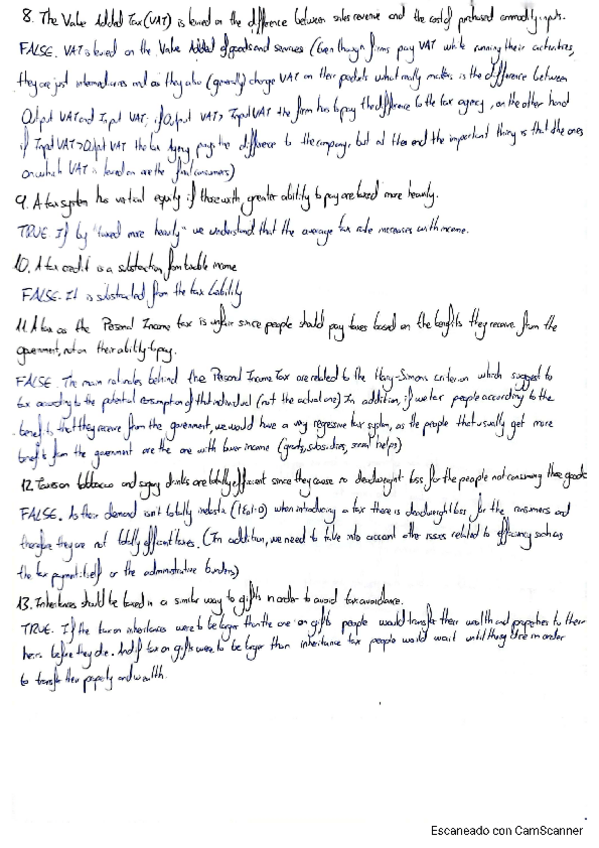 8. The Value Added Tax (VAT) is levied on the difference between sales revenue and the cost of purchased commodity inputs.
FALSE. VAT is levied on the Value Added of goods and services (Even though firms pay VAT while running their activities,
they are just intermediaries and as they also (generally) charge VAT on their products what really matters is the difference between
Output VAT and Input VAT; if Output VAT > Input VAT the firm has to pay the difference to the tax agency, on the other hand
if Input VAT > Output VAT the tax agency pays the difference to the company, but at the end the important thing is that the ones
on which VAT is levied on are the final consumers)
9. A tax system has vertical equity if those with greater ability to pay are taxed more heavily.
TRUE If by "taxed more heavily" we understand that the average tax rate increases with income.
10. A tax credit is a substraction from taxable income
FALSE. It is substracted from the tax liability
11. A tax as the Personal Income tax is unfair since people should pay taxes based on the benefits they receive from the
government, not on their ability to pay.
FALSE. The main rationales behind the Personal Income Tax are related to the Haig-Simons criterion which suggest to
tax according to the potential consumption of that individual (not the actual one) In addition, if we tax people according to the
benefits that they receive from the government, we would have a very regressive tax system, as the people that usually get more
benefits from the government are the one with lower income (grants, subsidies, social helps)
12. Taxes on tobacco and sugary drinks are totally efficient since they cause no deadweight loss for the people not consuming these goods
FALSE. As their demand isn't totally inelastic when introducing a tax there is deadweight loss for the consumers and
therefore they are not totally efficient taxes. (In addition, we need to take into account other issues related to efficiency such as
the tax payment itself or the administrative burdens)
13. Inheritances should be taxed in a similar way to gifts in order to avoid tax avoidance.
TRUE. If the tax on inheritances were to be larger than the one on gifts people would transfer their wealth and properties to their
heirs before they die. And if tax on gifts were to be larger than inheritance tax people would wait until they die in order
to transfer their property and wealth.
Escaneado con CamScanner